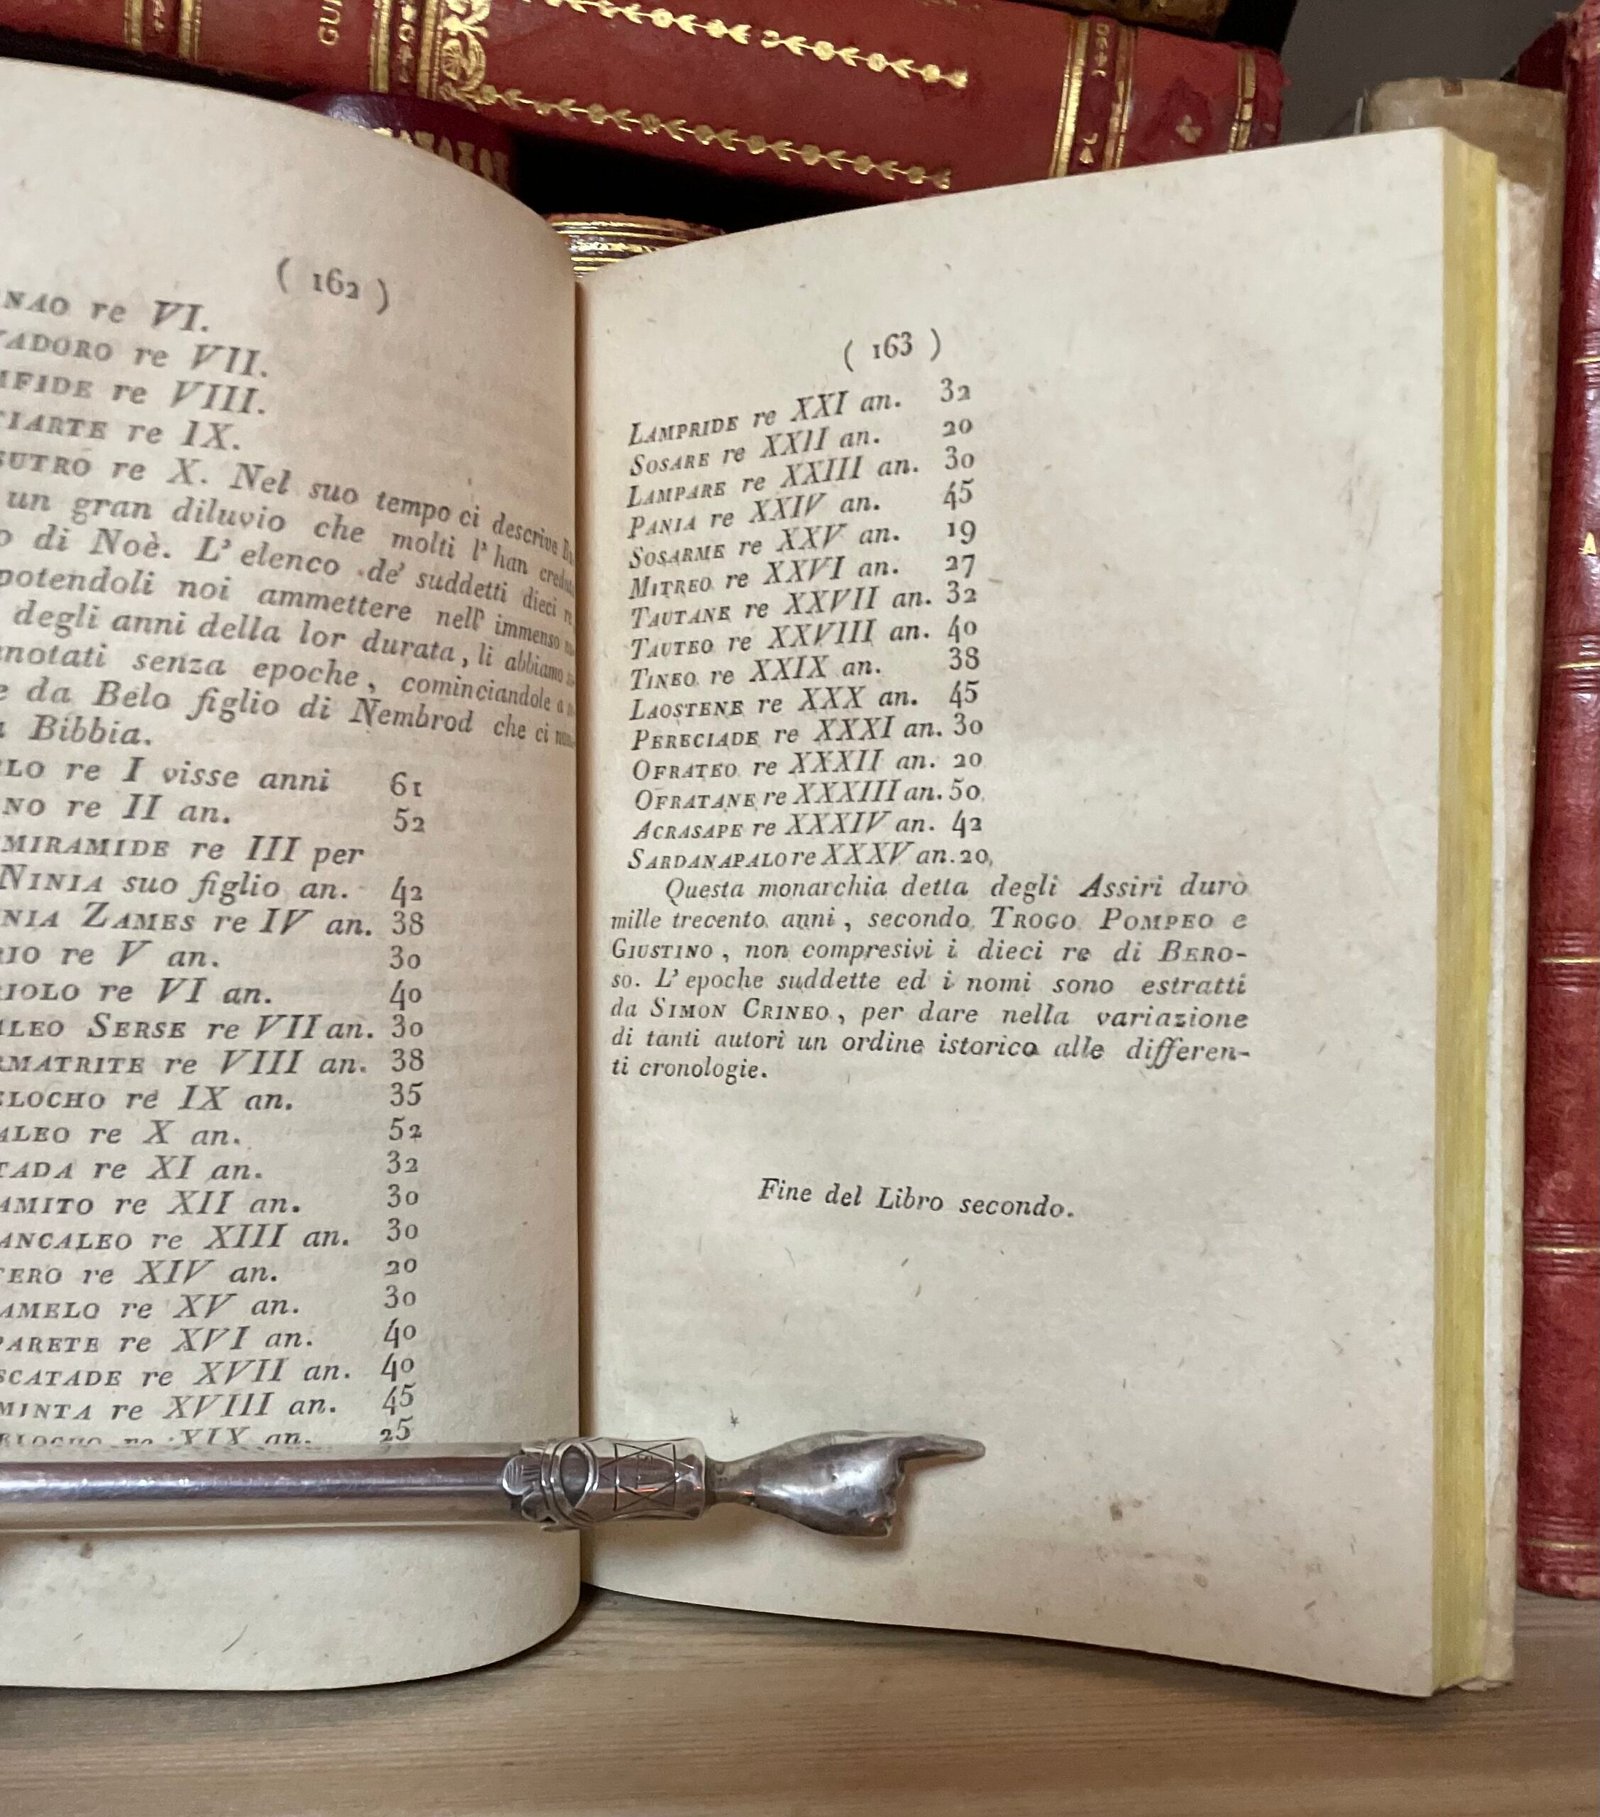 GU
( 162 )
NAO re VI.
ADORO re VII.
FIDE re VIII.
IARTE re IX.
SUTRO re X. Nel suo tempo ci descrive
un gran diluvio che molti l' han
o di Noè. L' elenco de' suddetti dieci re
potendoli noi ammettere nell' immenso
degli anni della lor durata, li abbiamo
notati senza epoche, cominciandole
e da Belo figlio di Nembrod che ci
Bibbia.
LO re I visse anni 61
NO re II an. 52
MIRAMIDE re III per
NINIA suo figlio an. 42
NIA ZAMES re IV an. 38
RIO re V an. 30
RIOLO re VI an. 40
LEO SERSE re VII an. 30
RMATRITE re VIII an. 38
ELOCHO re IX an. 35
ALEO re X an. 52
TADA re XI an. 32
AMITO re XII an. 30
ANCALEO re XIII an. 30
FERO re XIV an. 20
AMELO re XV an. 30
PARETE re XVI an. 40
SCATADE re XVII an. 40
MINTA re XVIII an. 45
ELOCHO re XIX an. 25
( 163 )
LAMPRIDE re XXI an. 32
SOSARE re XXII an. 20
LAMPARE re XXIII an. 30
PANIA re XXIV an. 45
SOSARME re XXV an. 19
MITREO re XXVI an. 27
TAUTANE re XXVII an. 32
TAUTEO re XXVIII an. 40
TINEO re XXIX an. 38
LAOSTENE re XXX an. 45
PERECIADE re XXXI an. 30
OFRATEO re XXXII an. 20
OFRATANE re XXXIII an. 50
ACRASAPE re XXXIV an. 42
SARDANAPALO re XXXV an. 20,
Questa monarchia detta degli Assiri durò
mille trecento anni, secondo TROGO POMPEO e
GIUSTINO, non compresivi i dieci re di BERO-
so. L' epoche suddette ed i nomi sono estratti
da SIMON CRINEO, per dare nella variazione
di tanti autori un ordine istorico alle differen-
ti cronologie.
Fine del Libro secondo.
A